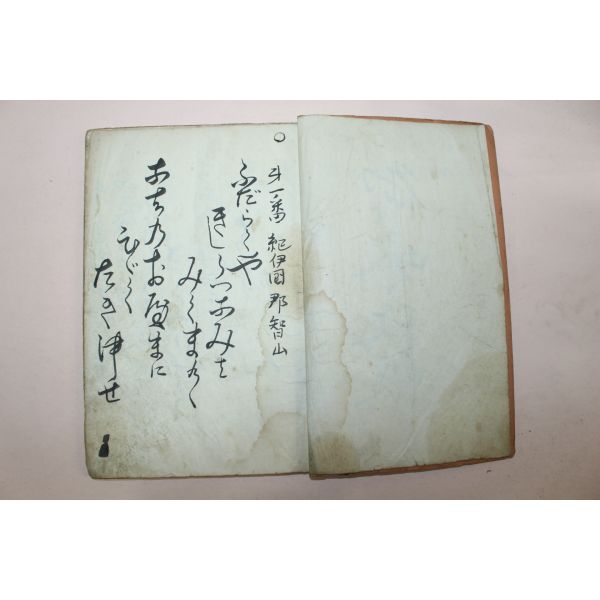 㐧一番 紀伊国 那智山
ふだらくや
きしうつなみは
みくまの〱
なち乃お屋まに
ひゞく
たき津せ